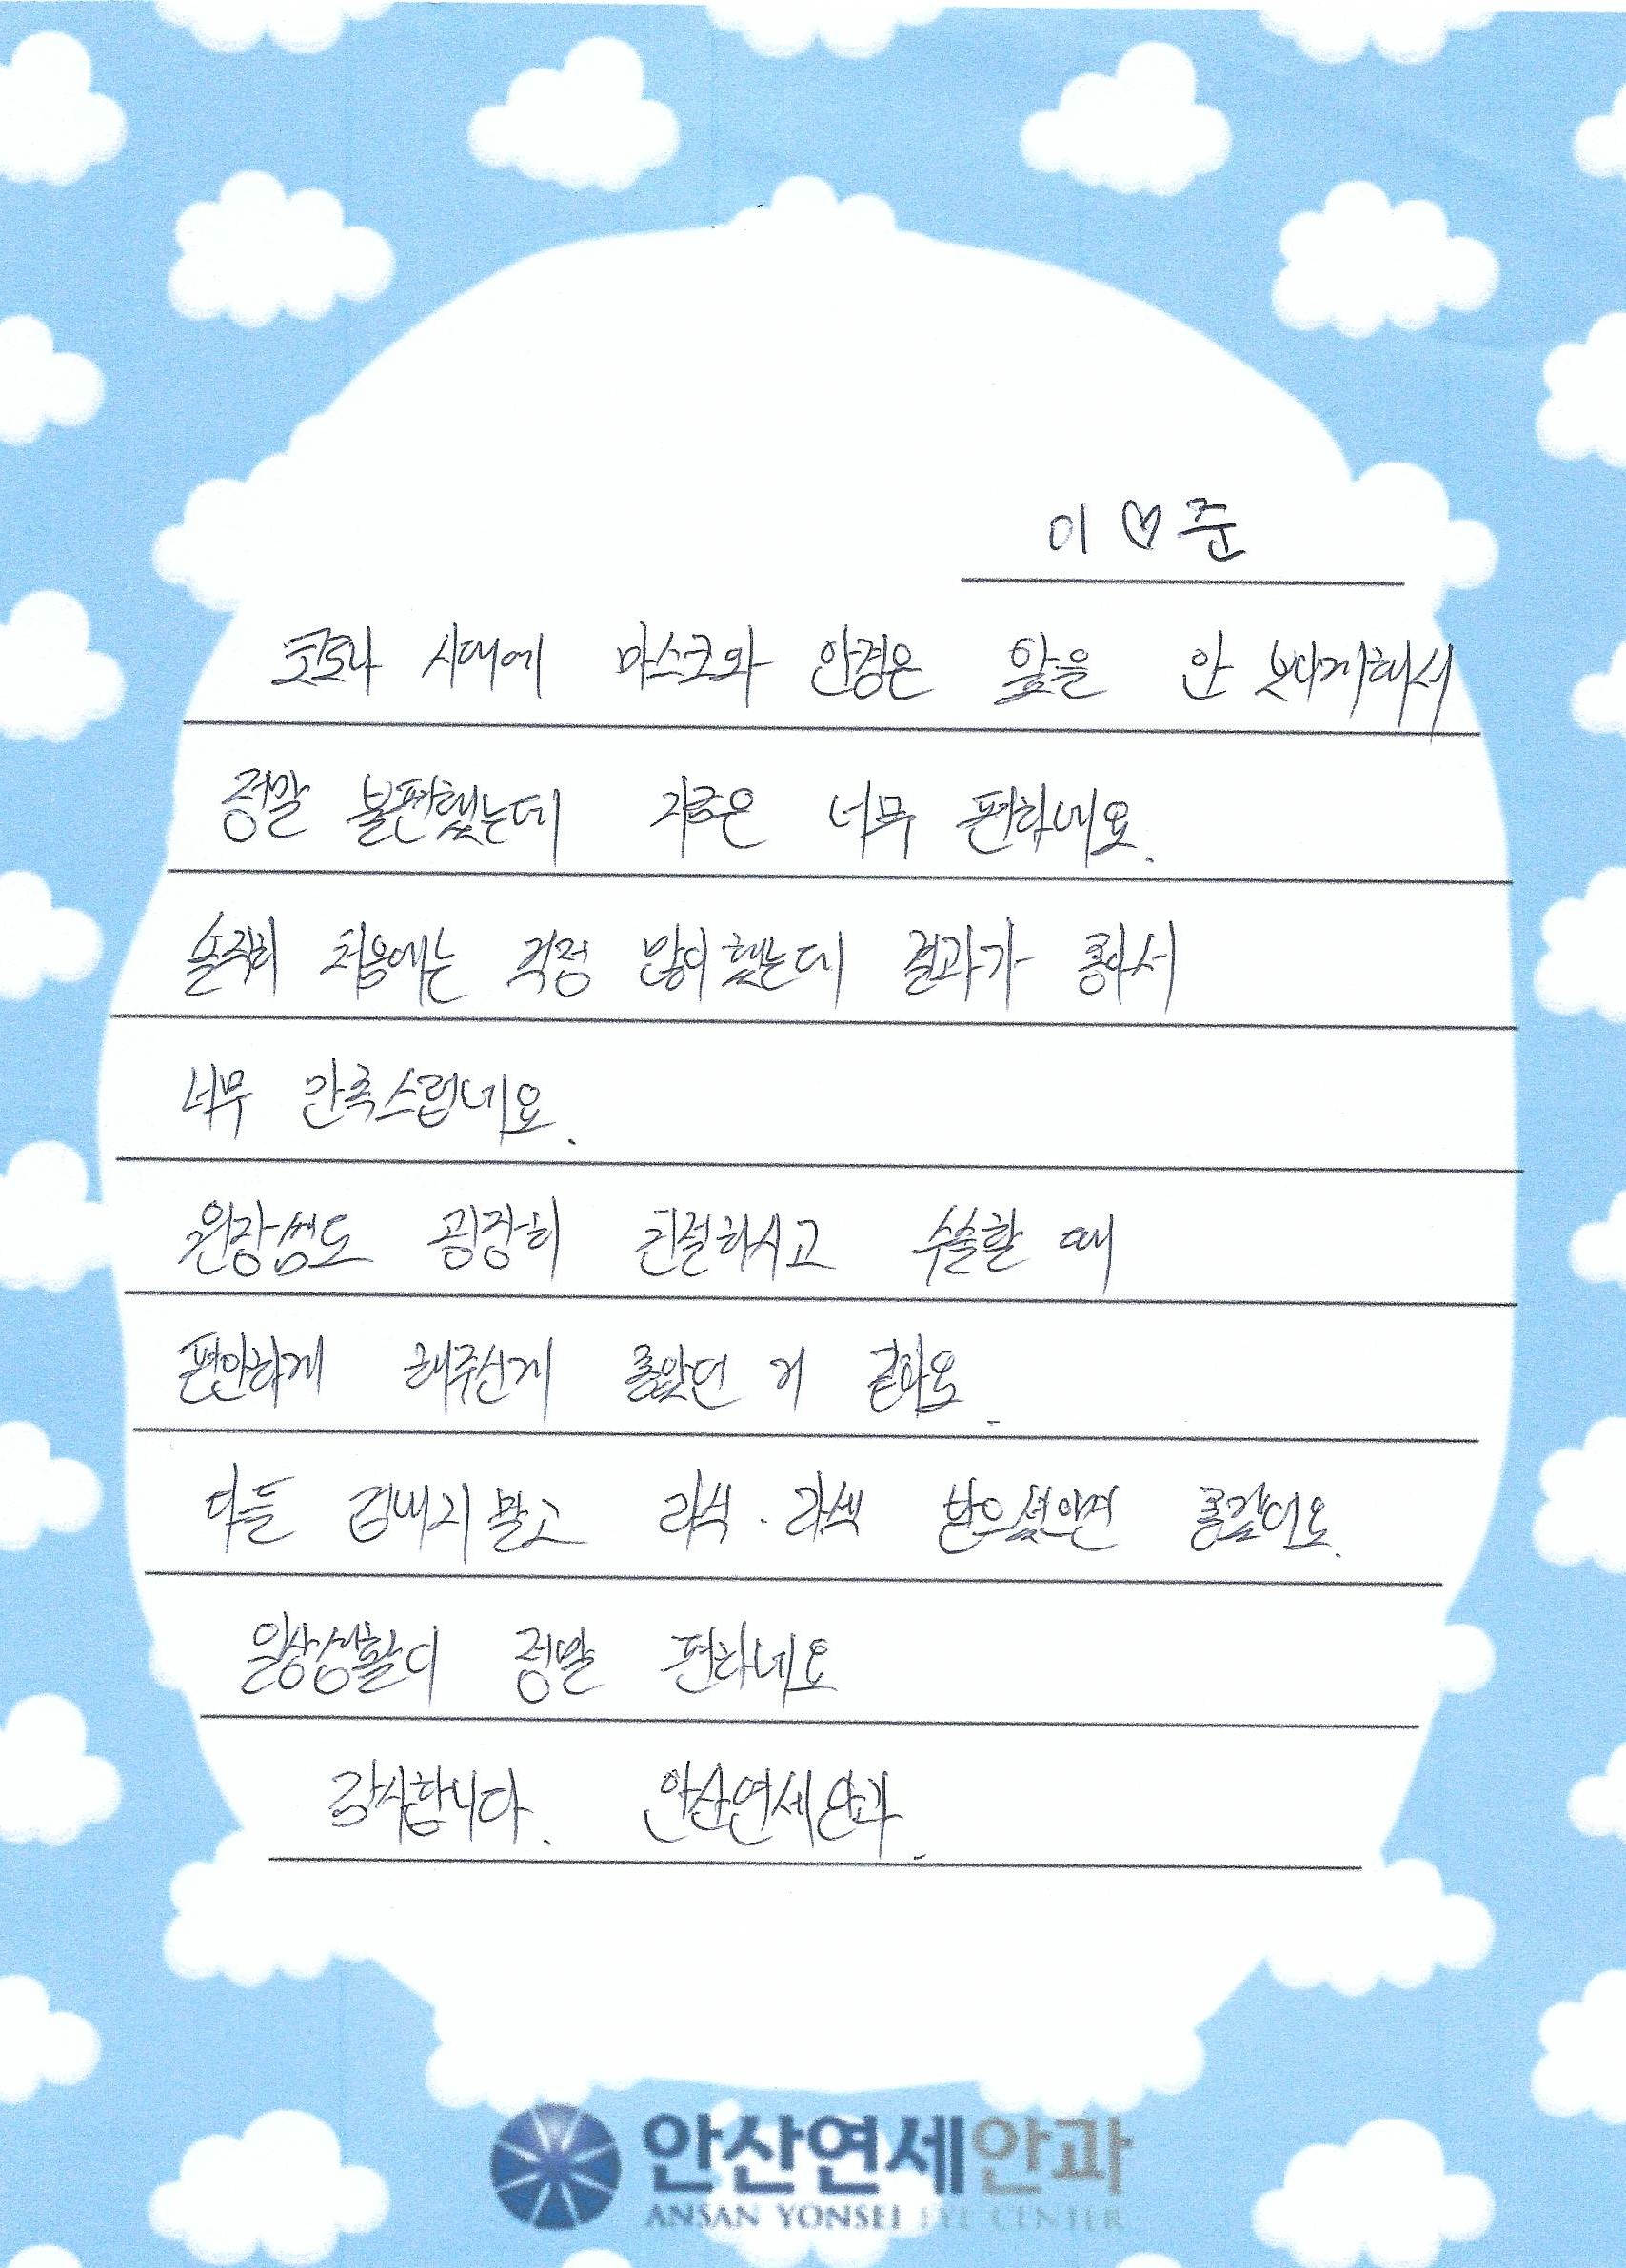 이 ♡ 준
코로나 시대에 마스크와 안경은 앞을 안 보이게해서
정말 불편했는데 지금은 너무 편하네요.
솔직히 처음에는 걱정 많이했는데 결과가 좋아서
너무 만족스럽네요.
원장쌤도 굉장히 친절하시고 수술할 때
편안하게 해주신게 좋았던 거 같아요.
다들 겁내지말고 라식·라섹 받으셨으면 좋겠어요.
일상생활이 정말 편하네요
감사합니다. 안산연세안과.
안산연세안과
ANSAN YONSEI EYE CENTER